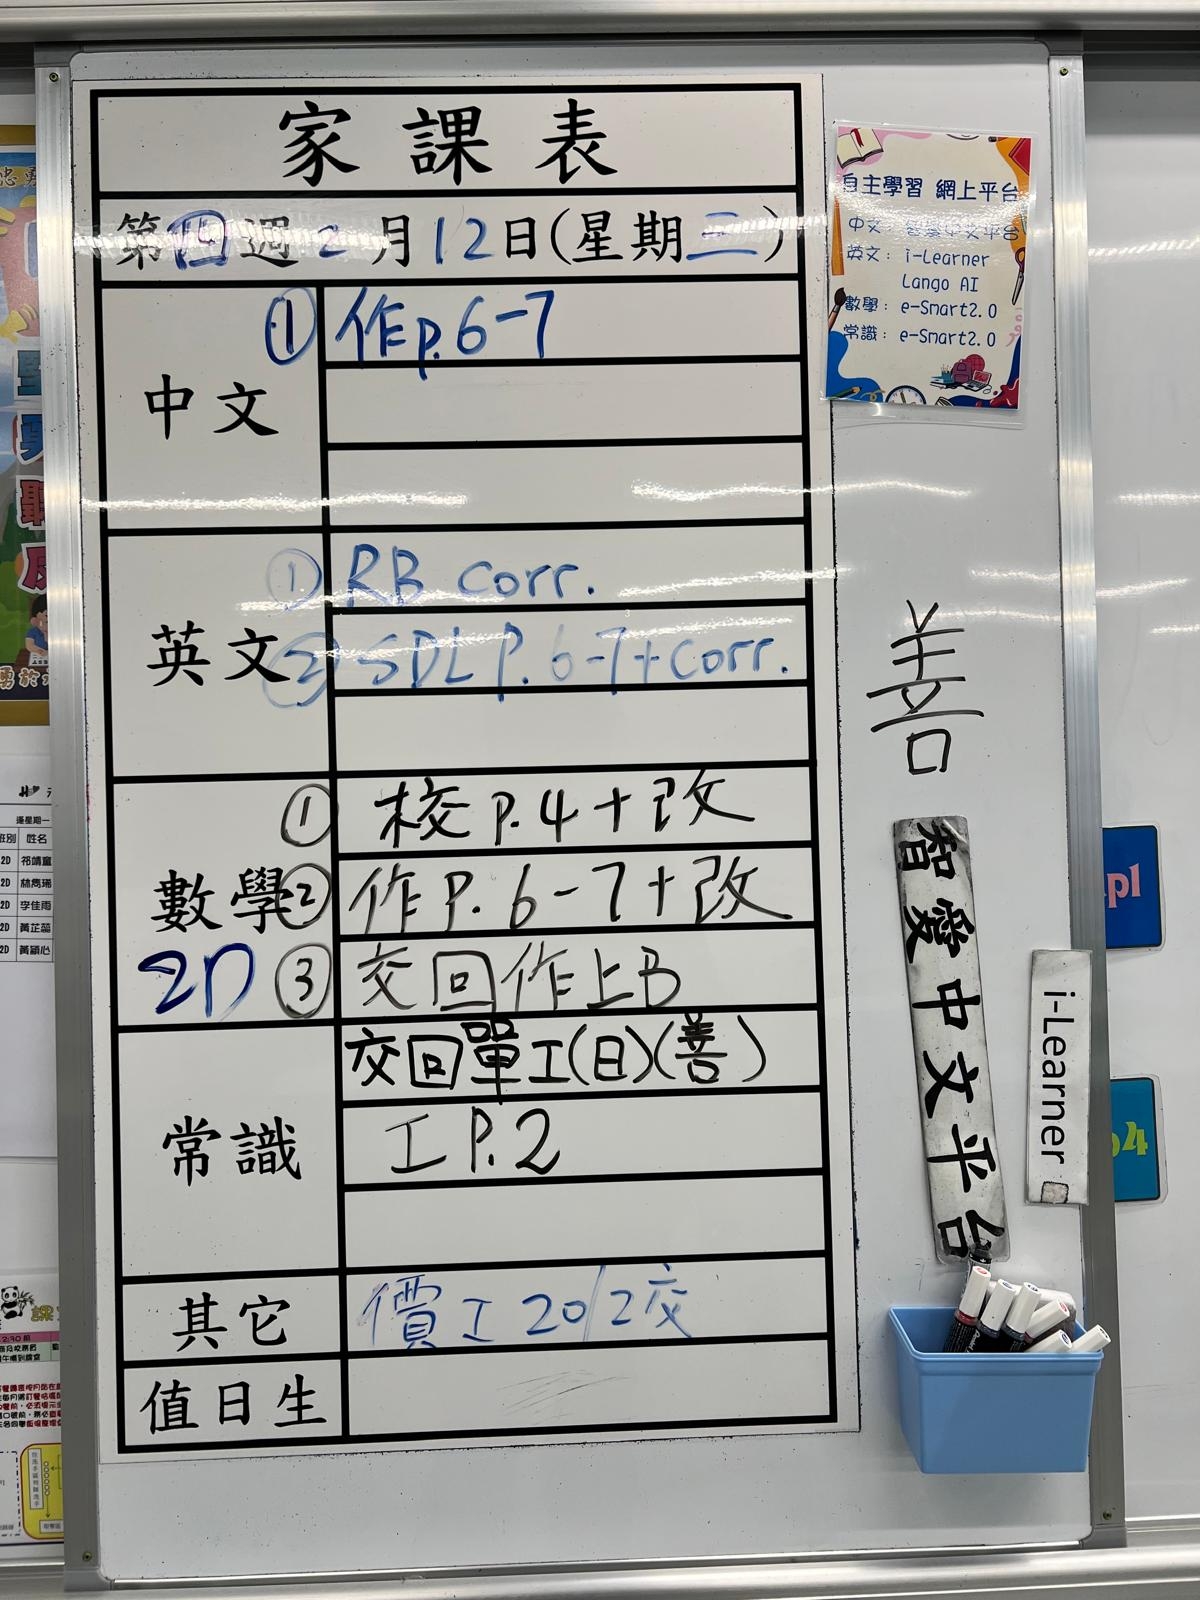 家課表
第四週2月12日(星期三)
中文
① 作p.6-7
英文
① RB corr.
② SDL P.6-7+corr.
數學
2D
① 校P.4+改
② 作P.6-7+改
③ 交回作上B
常識
交回單工(日)(善)
工P.2
其它
價工20/2交
值日生
自主學習 網上平台
中文：智愛中文平台
英文：i-Learner
Lango AI
數學：e-Smart2.0
常識：e-Smart2.0
善
智愛中文平台
i-Learner
班別 姓名
2D 祁靖童
2D 林雋瑀
2D 李佳雨
2D 黃芷蕊
2D 黃穎心